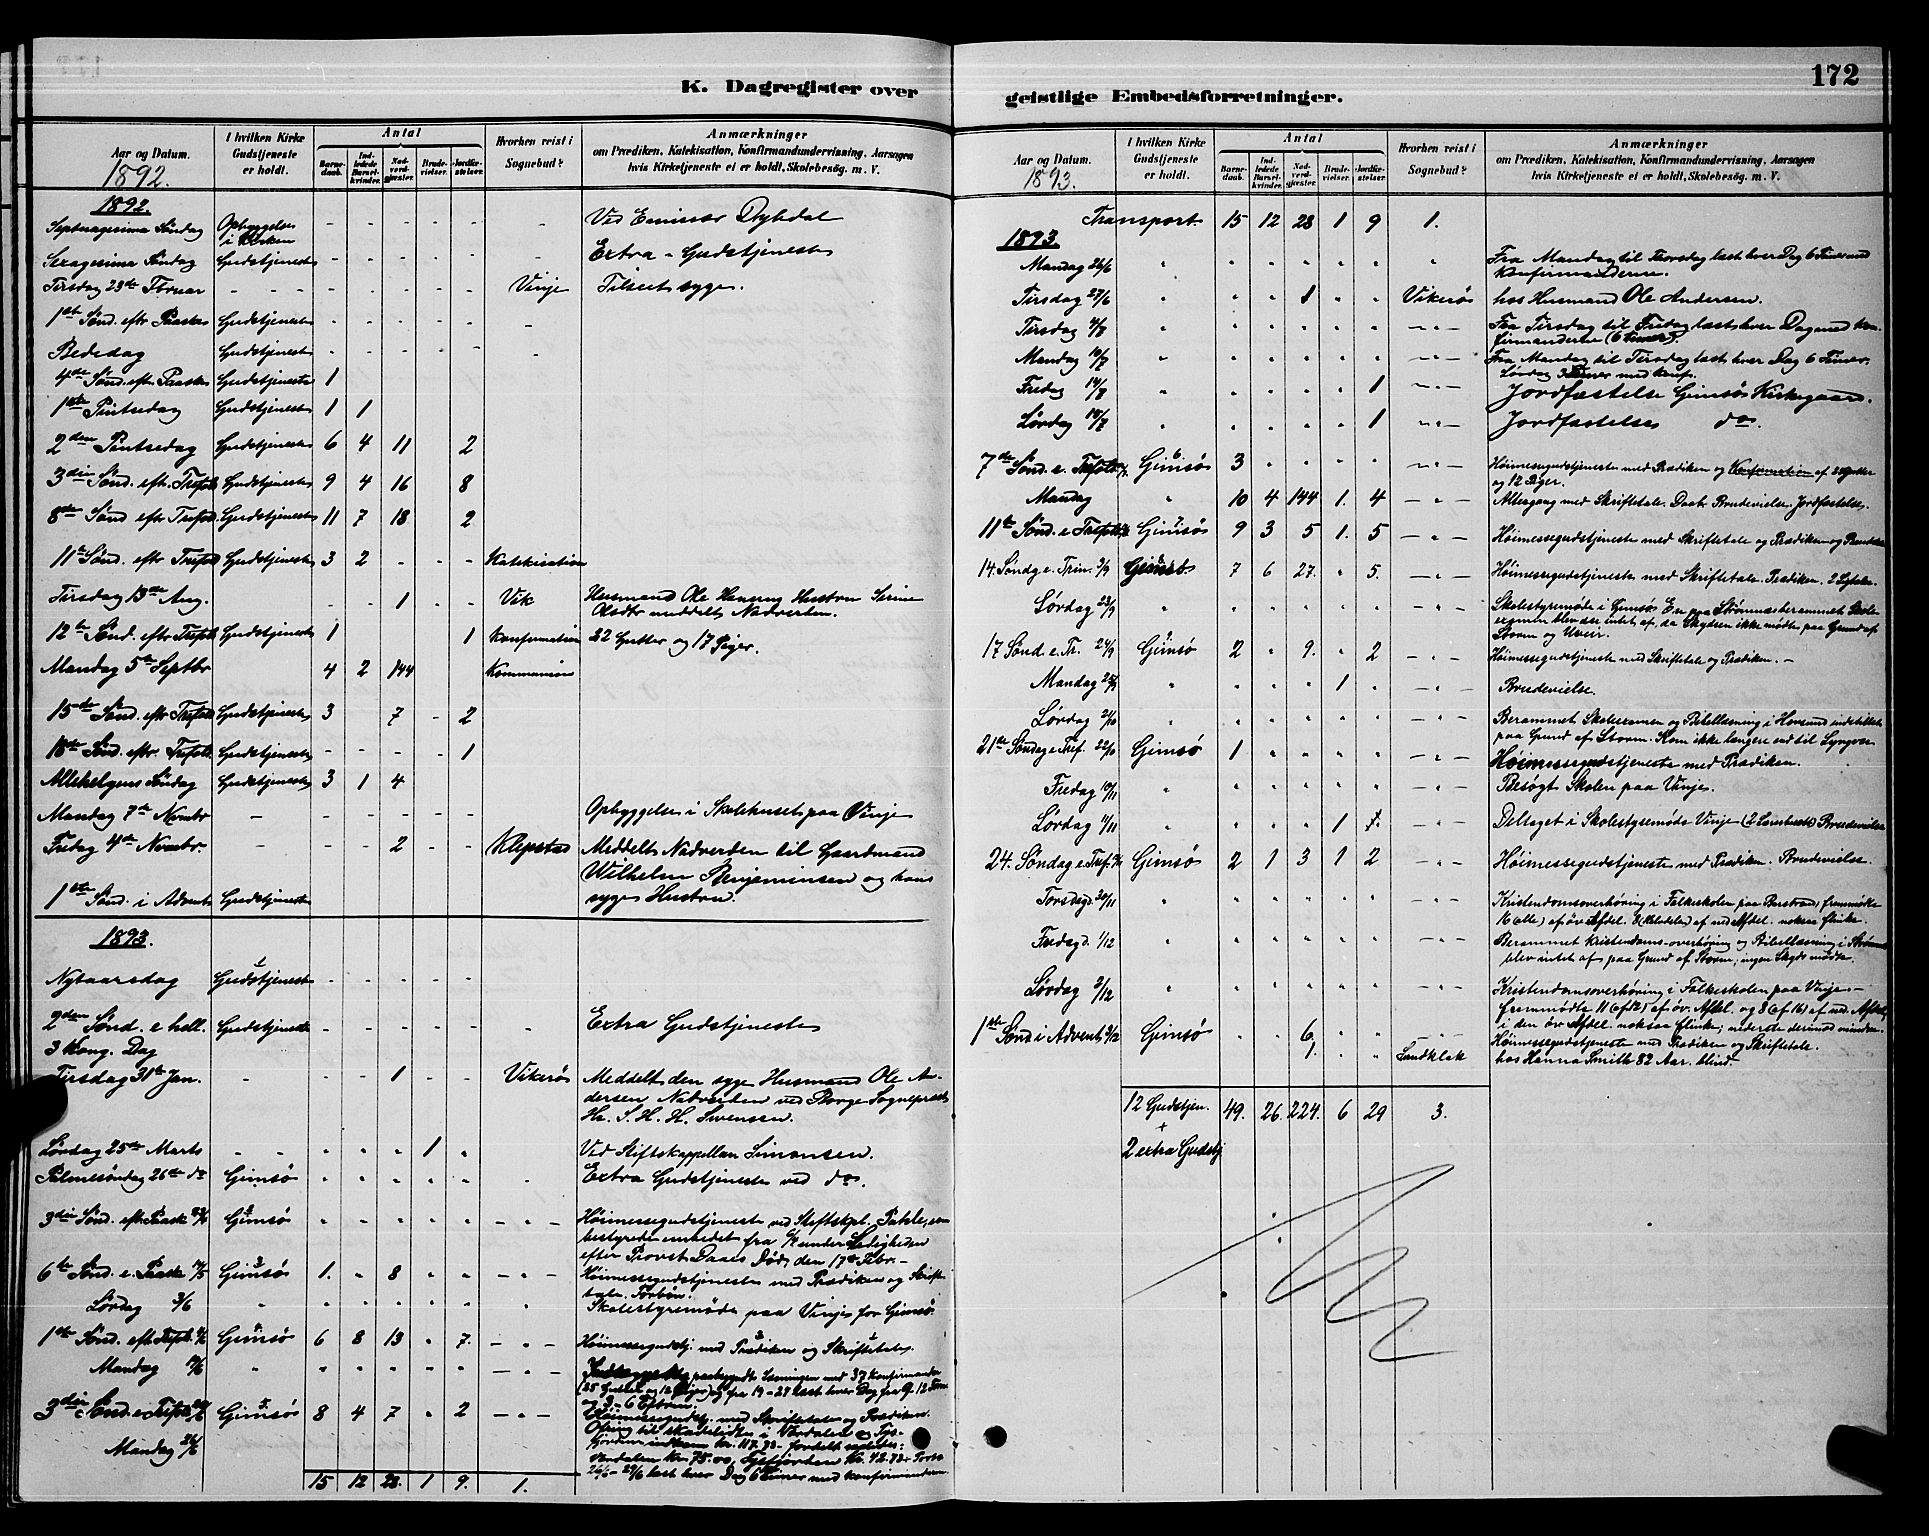 172
K. Dagregister over
geistlige Embedsforretninger.
Aar og Datum. 1892.
I hvilken Kirke Gudstjeneste er holdt.
Antal
Barnedaab. Indledede Barselkvinder. Nadverdgjester. Brudevielser. Jordfæstelser.
Hvorhen reist i Sognebud?
Anmærkninger
om Prædiken, Katekisation, Konfirmandundervisning, Aarsagen
hvis Kirketjeneste ei er holdt, Skolebesög. m. V.
1892.
Septuagesima Søndag Opbyggelse i Kirken - - - - - - Ved Emissær Dybdal
Sexagesima Søndag Gudstjeneste - - - - - - Extra-Gudstjeneste
Tirsdag 23de Februar - - - - - - Vinje Tilseet syge.
1ste Sønd. eftr Paaske Gudstjeneste - - - - - -
Bededag Gudstjeneste - - - - - -
4de Sønd. eftr. Paaske Gudstjeneste 1
1ste Pintsedag Gudstjeneste 1 1
2den Pintsedag Gudstjeneste 6 4 11 2
3die Sønd. eftr. Trefold Gudstjeneste 9 4 16 8
8de Sønd eftr Trefold Gudstjeneste 11 7 18 2
11te Sønd. eftr Trefold Gudstjeneste 3 2 - - - Katekisation
Tirsdag 13de Aug. - - 1 - - Vik Husmand Ole Hansens Hustru Serine
Olsdtr meddelt Nadverden.
12te Sønd. eftr Trefold Gudstjeneste 1 1 Konfirmation 22 Gutter og 17 Piger.
Mandag 5te Septbr 4 2 144 Kommunion
15de Sønd. eftr Trefold Gudstjeneste 3 7 - 2
18de Sønd. eftr. Trefold Gudstjeneste - - - - 1
Allehelgens Søndag Gudstjeneste 3 1 4
Mandag 7de Novmbr - - - - - - Opbyggelse i Skolehuset paa Vinje
Fredag 4de Novmbr. - - - 2 - - Klepstad Meddelt Nadverden til Gaardmand
Wilhelm Benjaminsen og hans
1ste Sønd. i Advent Gudstjeneste syge Hustru.
1893.
Nytaarsdag Gudstjeneste - - - - -
2den Sønd. e hell. Gudstjeneste - - - - - Extra Gudstjeneste
3 Kong. Dag
Tirsdag 31te Jan. - - - 1 - - Vikerøs Meddelt den syge Husmand Ole An-
dersen Nadverden ved Borge Sognepræst
Hr. S. H. H. Svensen.
Lørdag 25de Marts - - - - 1 - Ved Stiftskappellan Simonsen.
Palmesøndag 26de do Gimsø - - - - - - Extra Gudstjeneste ved do.
3die Sønd. eftr. Paaske Gimsø - - - - - - Høimessegudstjeneste ved Stiftskpl. Pahle, som
bestyrede embedet fra under Ledigheden
efter Provst Daaes Død, den 17de Febr.-
6te Sønd. e. Paaske Gimsøs 1. - 8 - - - Høimessegudstjeneste med Prædiken og Skrifte-
tale. Forbøn.
Lørdag 3/6 - - - - - - Skolestyremøde paa Vinje for Gimsø.
1ste Sønd. eft Trefold. Gimsøs 6 8 13 - 7. - Høimessegudstj. med Prædiken og Skriftetale.
Mandag - - - - - - paabegyndt Læsningen med 37 konfirmander
(25 Gutter og 12 Piger) og fra 19-24 læst hver Dag fra 9-12 Form
og 3-6 Efterm.
3die Sønd. e. Trefold Gimsøs 8 4 7 - 2 - Høimessegudstj. med Skriftetale og Prædiken.
Ofring til skadelidte i Værdalen og Tys-
Mandag 26/6 fjorden indkom Kr. 117.73 - fordelt saaledes:
Værdalen Kr. 75.00, Tysfjorden Kr. 42.73.
26/6-29/6 læst hver Dag 6 Timer med konfirmanderne.
15 12 28. 1 9. 1.
Aar og Datum. 1893.
I hvilken Kirke Gudstjeneste er holdt.
Antal
Barnedaab. Indledede Barselkvinder. Nadverdgjester. Brudevielser. Jordfæstelser.
Hvorhen reist i Sognebud?
Anmærkninger
om Prædiken, Katekisation, Konfirmandundervisning, Aarsagen
hvis Kirketjeneste ei er holdt, Skolebesög, m. V.
Transport. 15 12 28 1 9 1.
1893.
Mandag 26/6 - - - - - - Fra Mandag til Torsdag læst hver Dag 6 Timer med
Konfirmanderne.
Tirsdag 27/6 - - - 1 - - Vikerøs hos Husmand Ole Andersen.
Tirsdag - - - - - - Fra Tirsdag til Fredag læst hver Dag med kon-
firmanderne (6 Timer).
Mandag 10/7 - - - - - - Fra Mandag til Tirsdag læst hver Dag 6 Timer.
Lørdag 3 Timer med konf.
Fredag - - - - - 1 - Jordfæstelse Gimsøs Kirkegaard.
Lørdag - - - - - 1 - Jordfæstelse do.
7de Sønd. e. Trefold. Gimsøs 3 - - - - - Høimessegudstjeneste med Prædiken og Konfirmation af 25 Gutter
og 12 Piger.
Mandag - 10 4 144 1. 4 - Altergang med Skriftetale. Daab. Brudevielse. Jordfæstelse.
11te Sønd. e Trefold Gimsøs 9 3 5 1. 5 - Høimessegudstjeneste med Skriftetale og Prædiken og
14. Søndg e. Trin. 3/9 Gimsøs. 7 6 27. - 5. - Høimessegudstjeneste med Skriftetale. Prædiken.
Lørdag 23/9 - - - - - - Skolestyremøde i Gimsøs. En paa Strømnæs berammet Skole-
examen blev der intet af, da Skydsen ikke mødte paa Grund af
Storm og Uveir.
17 Sønd. e. Tr. 24/9 Gimsø 2 - 9. - 2 - Høimessegudstjeneste med Skriftetale og Prædiken.-
Mandag 25/9 - - - - 1 - - Brudevielse.
Lørdag - - - - - - Berammet Skoleexamen og Bibellæsning i Hovsund indstillet
paa Grund af Storm. Kom ikke længere end til Lyngvær
21de Søndag e Tref. 22/10 Gimsø 1 - - - - - Høimessegudstjeneste med Prædiken.
Fredag 10/11 - - - - - - Besøgt Skolen paa Vinje.
Lørdag 11/11 - - - - 1 - Deltaget i Skolestyremøde Vinje Brudevielse
24. Søndag e. Tref. Gimsø 2 1 3 1 2 - Høimessegudstjeneste med Prædiken. Brudevielse.
Torsdag 30/11 - - - - - - Kristendomsoverhøring i Folkeskolen paa Barstrand, fremmødte
16 (alle) af øv Afdel. 8 af ned Afdel. noksaa flinke.
Fredag d. 1/12 - - - - - - Berammet Kristendoms-overhøring og Bibellæsning i Strømnæs
blev intet af paa Grund af Storm; ingen Skyds mødte.
Lørdag 2/12 - - - - - - Kristendomsoverhøring i Folkeskolen paa Vinje-
fremmødte 11 (af 12) af øv. Afdel. og 8 (af 16) af ned. Afdel.
i den øv Afdel. noksaa flinke; nederste derimod mindre.
1ste Sønd i Advent 3/12 Gimsø - - 6, - - - Høimessegudstjeneste med Prædiken og Skriftetale.
1. - - Sundklak hos Hanna Smith 82 Aar. blind.
12 Gudstjen. 49. 26. 224. 6 29 3.
+
2 extra Gudstj